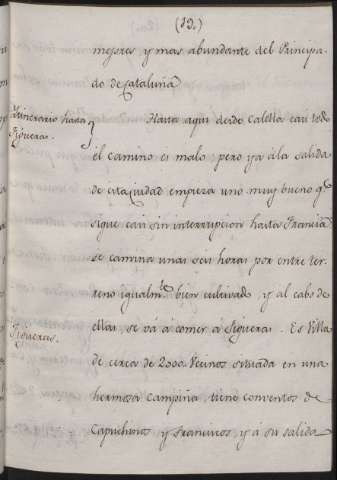 (12.)
mejores y mas abundante del Principa-
do de Cataluña
Itinerario hasta
Figueras.
Hasta aqui desde Calella casi todo
el camino es malo, pero ya á la salida
de esta ciudad empieza uno muy bueno q.e
sigue casi sin interrupcion hasta Francia
se camina unas seis horas por entre ter-
reno igualm.te bien cultivado y al cabo de
ellas, se vá á comer a Figueras. Es Villa
Figueras.
de cerca de 2000 Vecinos situada en una
hermosa campiña tiene conventos de
Capuchinos y Francisco y á su salida